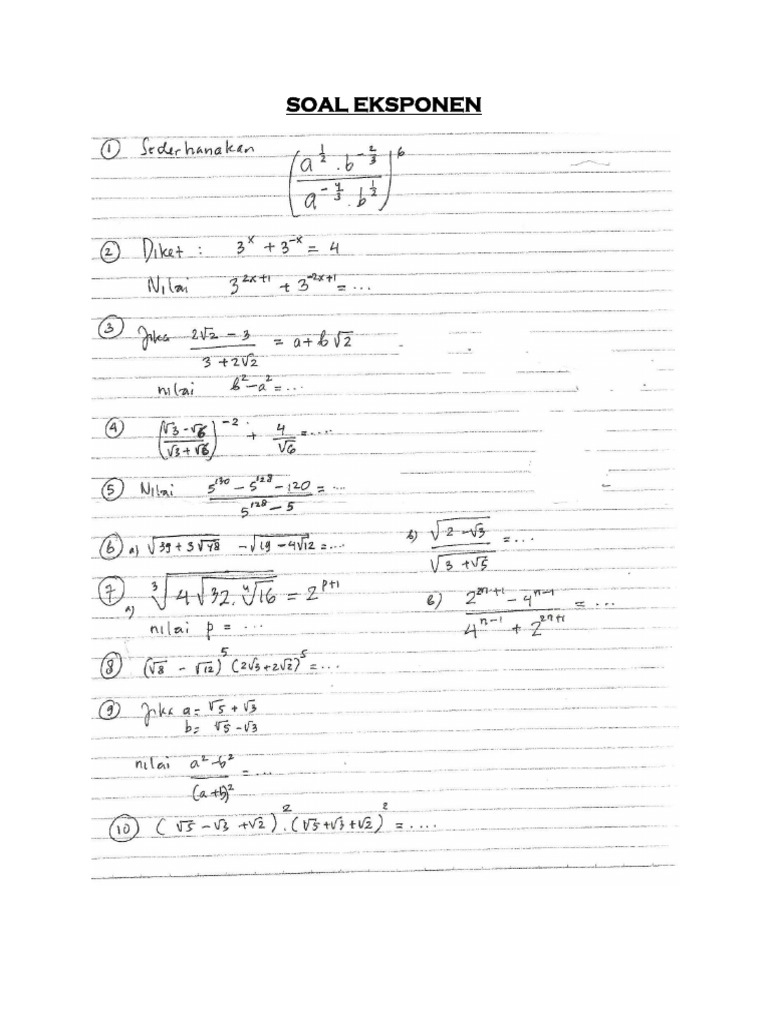 SOAL EKSPONEN
① Sederhanakan (a^{1/2} . b^{-2/3} / a^{-4/3} . b^{1/2})^6
② Diket : 3^x + 3^{-x} = 4
Nilai 3^{2x+1} + 3^{-2x+1} = ...
③ Jika (2√2 - 3) / (3 + 2√2) = a + b√2
nilai b² - a² = ...
④ ((√3 - √6) / (√3 + √6))^{-2} + 4/√6 = ....
⑤ Nilai (5^{130} - 5^{128} - 120) / (5^{128} - 5) = ...
⑥ a) √(39 + 3√48) - √(19 - 4√12) = ... b) √(2 - √3) / √(3 + √5) = ...
⑦ a) ³√(4√(32. ⁴√16)) = 2^{p+1} b) (2^{2n+1} - 4^{n-1}) / (4^{n-1} + 2^{2n+1}) = ...
nilai p = ...
⑧ (√8 - √12)^5 (2√3 + 2√2)^5 = ...
⑨ Jika a = √5 + √3
b = √5 - √3
nilai (a² - b²) / (a + b)² = ...
⑩ (√5 - √3 + √2)² . (√5 + √3 + √2)² = ....